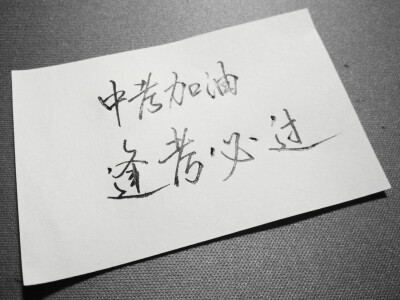 中考加油
逢考必过